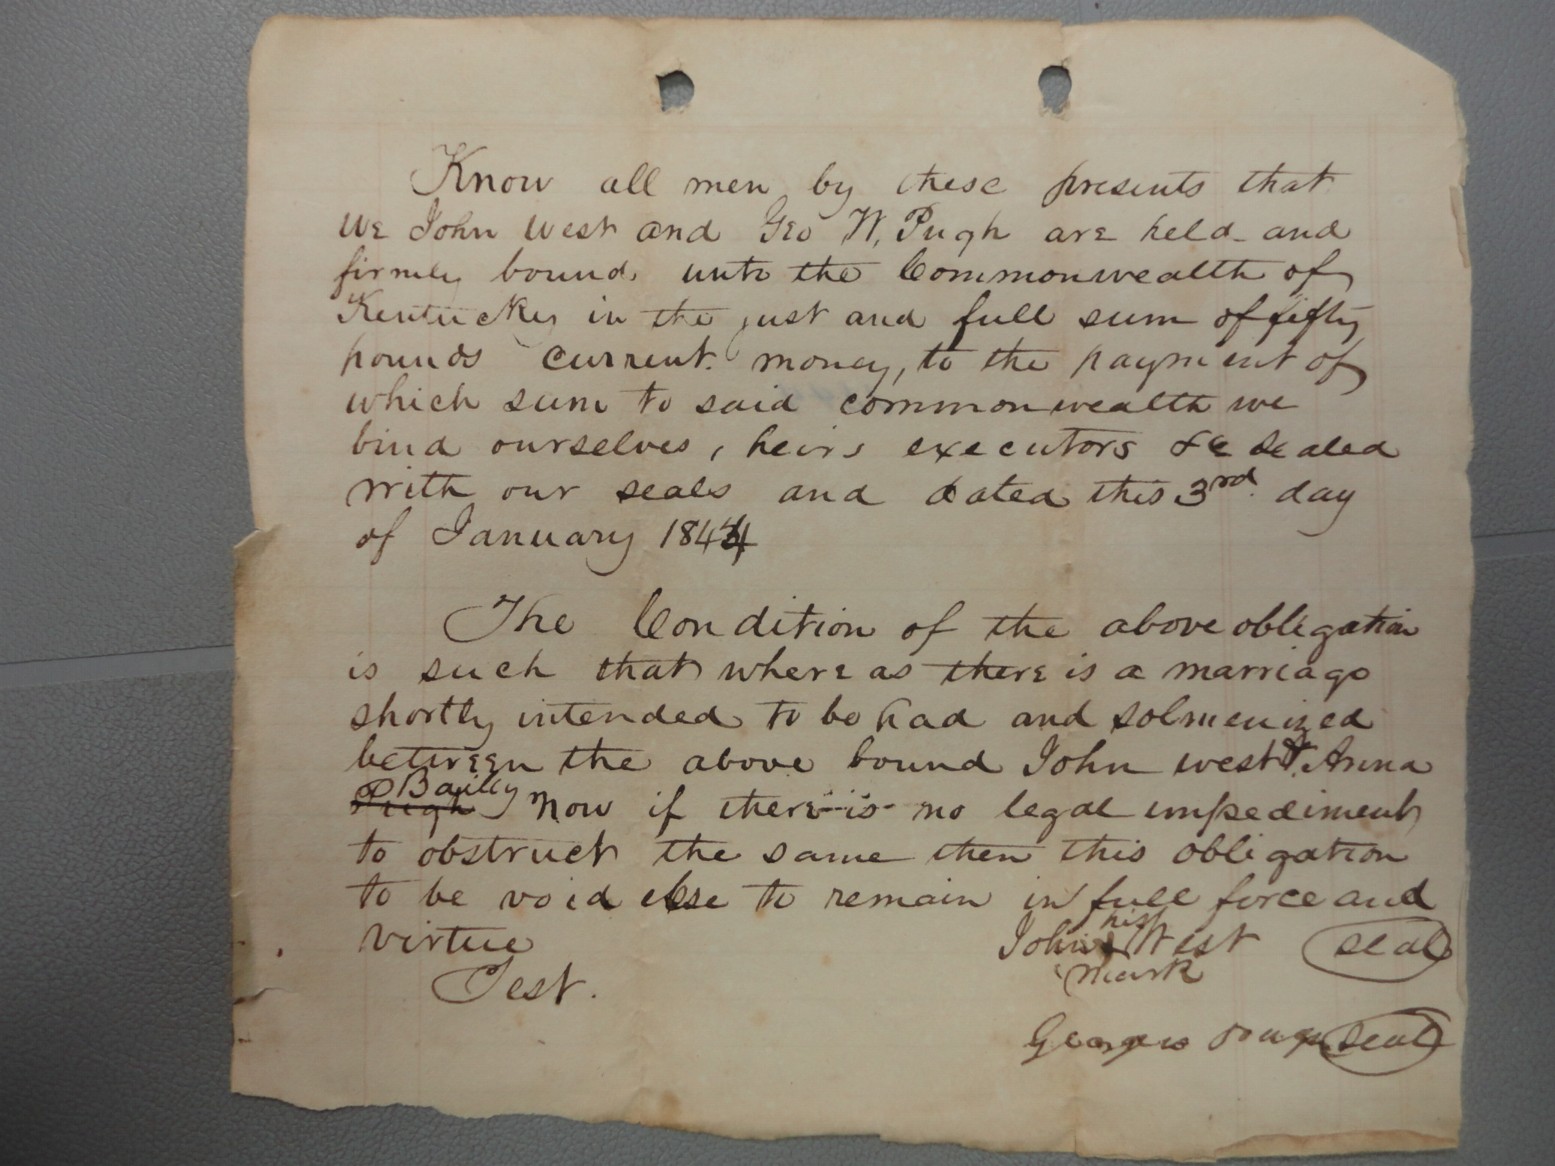 Know all men by these presents that
we John West and Geo W. Pugh are held and
firmly bound unto the Commonwealth of
Kentucky in the just and full sum of fifty
pounds current money, to the payment of
which sum to said commonwealth we
bind ourselves, heirs executors &c sealed
with our seals and dated this 3rd day
of January 1844
The Condition of the above obligation
is such that where as there is a marriage
shortly intended to be had and solmenized
between the above bound John west & Anna
Bailey
Pugh Now if there is no legal impediment
to obstruct the same then this obligation
to be void else to remain in full force and
virtue
his
John West seal
mark
Test.
George w Pugh seal